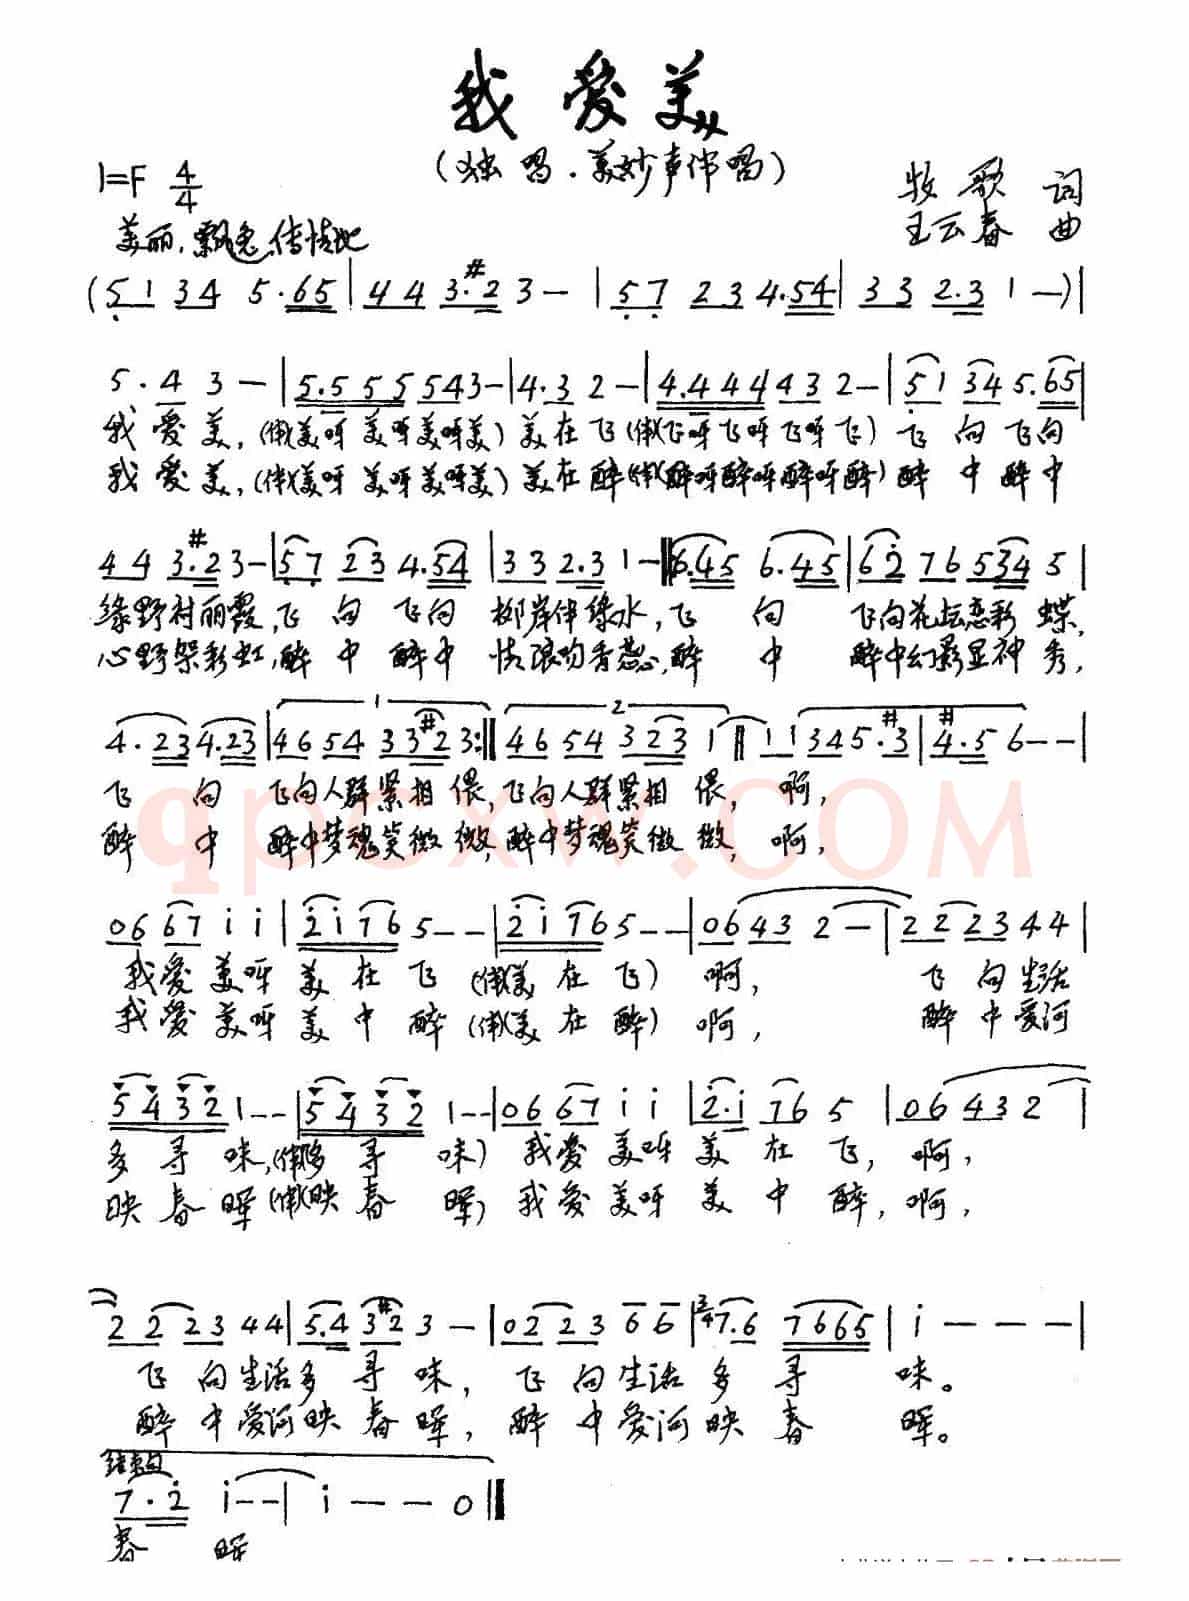 我爱美
(独唱.美妙声伴唱)
1=F 4/4
牧歌 词
王云春 曲
美丽,飘逸,传情地
(5 1 3 4 5·6 5 | 4 4 3·#2 3 — | 5 7 2 3 4·5 4 | 3 3 2·3 1 —) |
5·4 3 — | 5·5 5 5 5 4 3 — | 4·3 2 — | 4·4 4 4 4 3 2 — | 5 1 3 4 5·6 5 |
我爱美,(伴)(美呀美呀美呀美)美在飞(伴)(飞呀飞呀飞呀飞)飞向飞向
我爱美,(伴)(美呀美呀美呀美)美在醉(伴)(醉呀醉呀醉呀醉)醉中醉中
4 4 3·#2 3 — | 5 7 2 3 4·5 4 | 3 3 2·3 1 — | 6·4 5 6·4 5 | 6 2 7 6 5 3 4 5 |
绿野村丽霞,飞向飞向柳岸伴绿水,飞向飞向花坛恋彩蝶,
心野架彩虹,醉中醉中情浪吻香蕊,醉中醉中幻影显神秀,
4·2 3 4·2 3 | 1 4 6 5 4 3 3 #2 3 :| 2 4 6 5 4 3 2 3 1 | 1 1 3 4 5·#3 | #4·5 6 — — |
飞向飞向人群紧相偎,飞向人群紧相偎,啊,
醉中醉中梦魂笑微微,醉中梦魂笑微微,啊,
qpcxw.COM
0 6 6 7 i i | 2 i 7 6 5 — — | 2 i 7 6 5 — — | 0 6 4 3 2 — | 2 2 2 3 4 4 |
我爱美呀美在飞(伴)(美在飞)啊,飞向生活
我爱美呀美中醉(伴)(美在醉)啊,醉中爱河
5 4 3 2 1 — — | 5 4 3 2 1 — — | 0 6 6 7 i i | 2·i 7 6 5 | 0 6 4 3 2 |
多寻味,(伴)(多寻味)我爱美呀美在飞,啊,
映春晖(伴)(映春晖)我爱美呀美中醉,啊,
2 2 2 3 4 4 | 5·4 3 #2 3 — | 0 2 2 3 6 6 | 3/4 7·6 7 6 6 5 | i — — — |
飞向生活多寻味,飞向生活多寻味。
醉中爱河映春晖,醉中爱河映春晖。
结束句
7·2 i — — | i — — 0 ‖
春晖